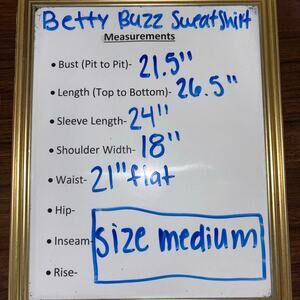 Betty Buzz Sweatshirt
Measurements
• Bust (Pit to Pit)- 21.5"
• Length (Top to Bottom)- 26.5"
• Sleeve Length- 24"
• Shoulder Width- 18"
• Waist- 21" flat
• Hip-
• Inseam- size medium
• Rise-